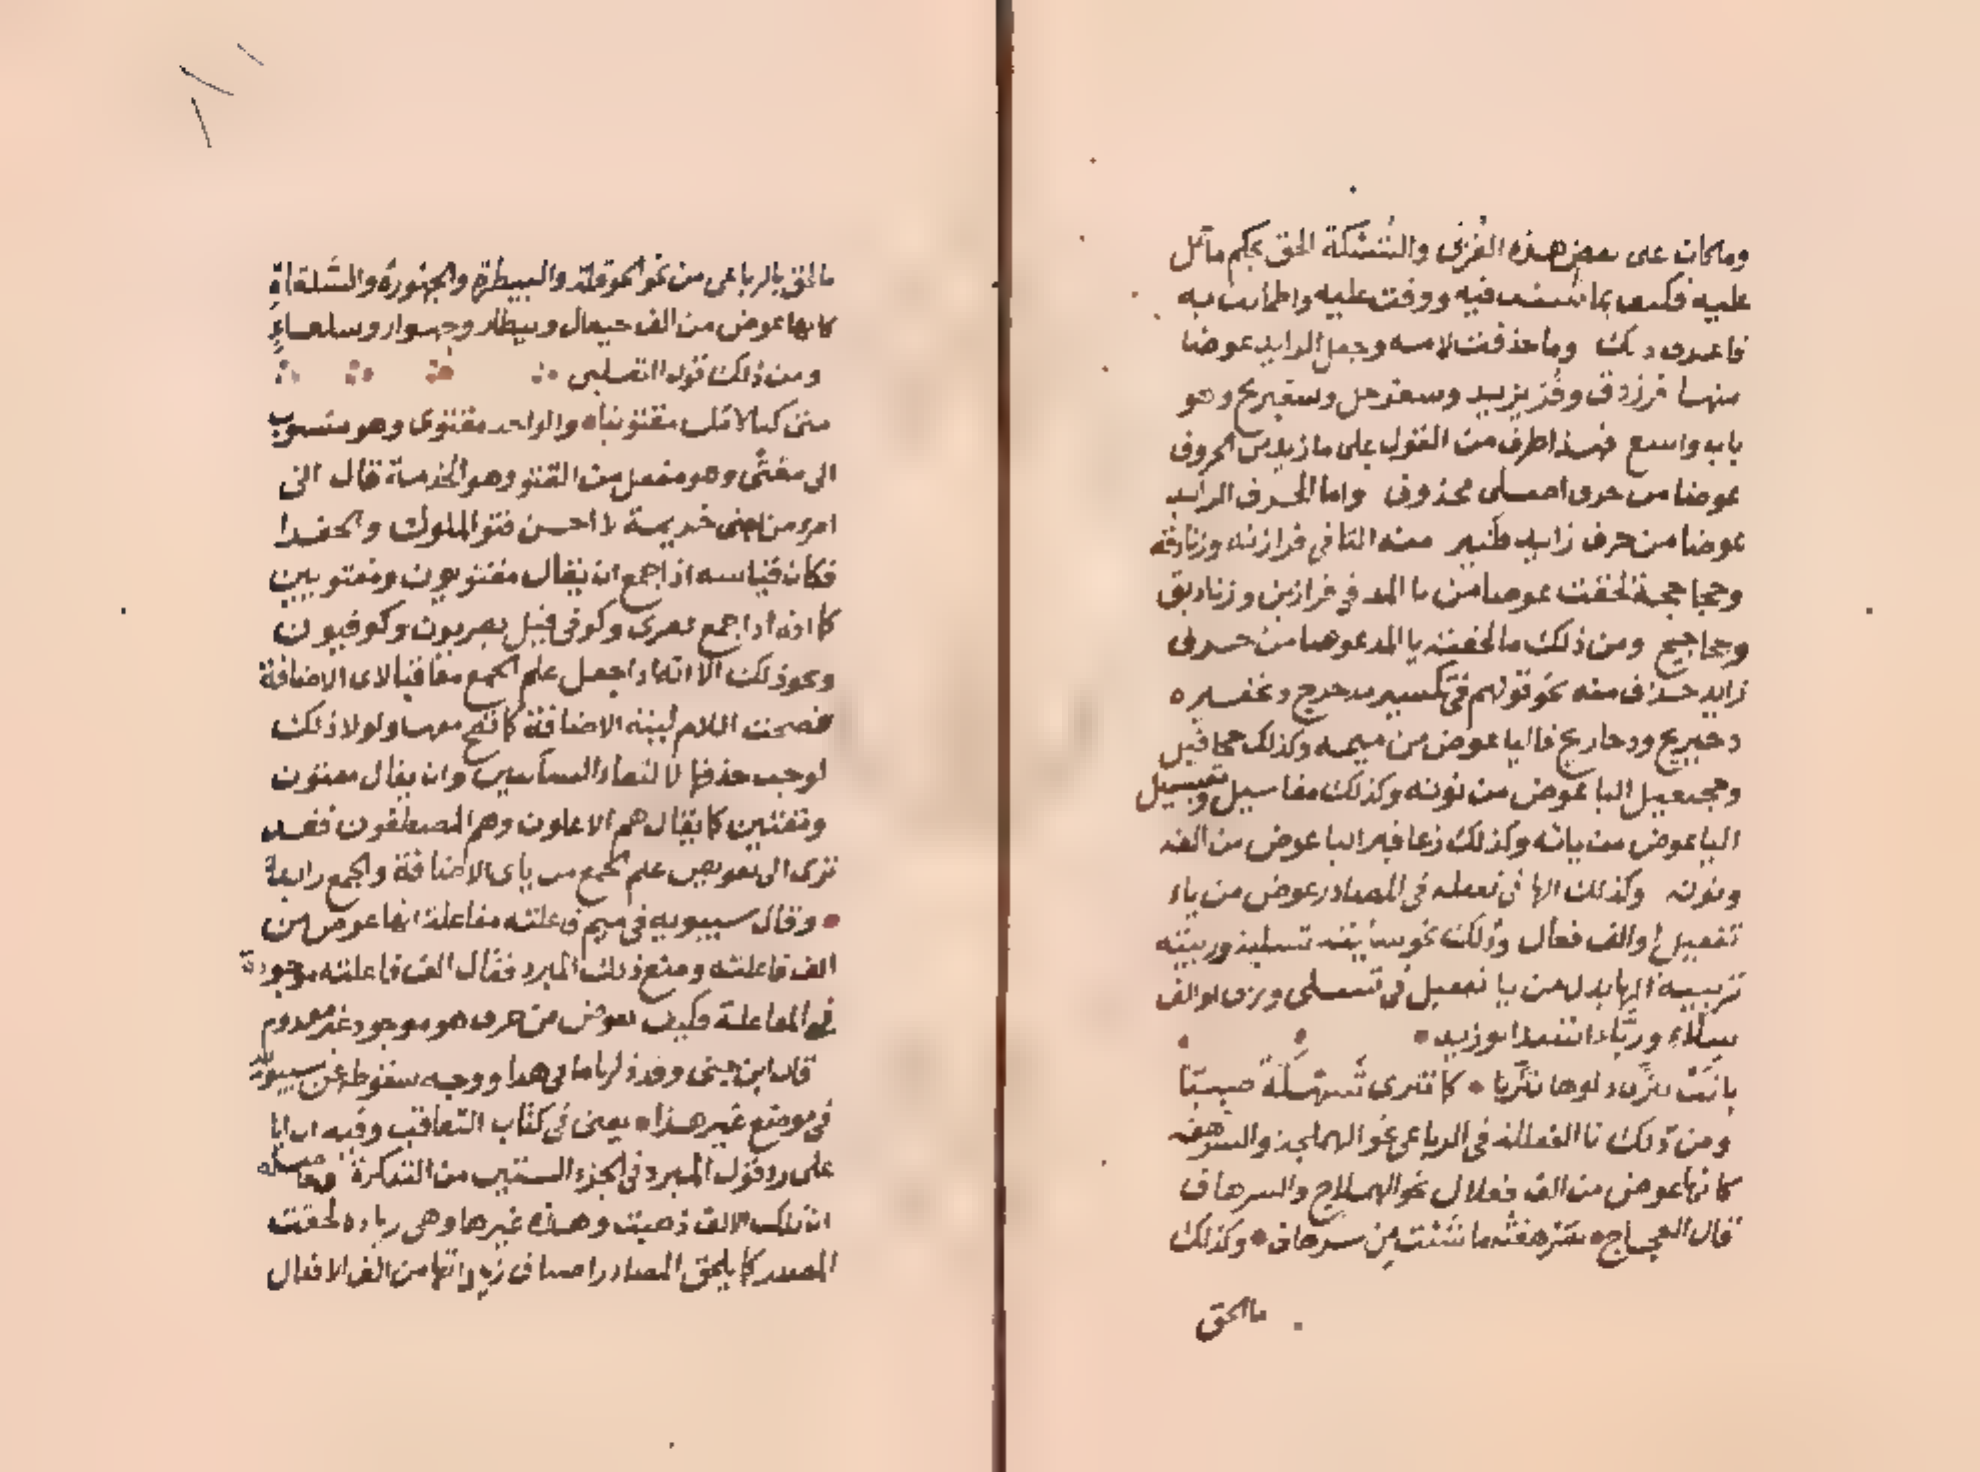 وما كان على بعض هذه الفرق والنشكة الحق بحكم ماثل
عليه فكيف بما فيه ووقت عليه واطمأنت به
فاعرف ذلك وما حذفت لامه وجعل الزايد عوضا
منها فرزدق وفريزيد وسفرجل وسفيرج وهو
باب واسع فهذا طرف من القول على ما زيد من الحروف
عوضا من حرف اصلي محذوف واما الحرف الزايد
عوضا من حرف زايد فكثير منه التا في فرازنة وزنادقة
وجحاجحة لحقت عوضا من يا المد في فرازين وزناديق
وجحاجيح ومن ذلك ما لحقته يا المد عوضا من حرف
زايد حذف منه نحو قولهم في تكسير مدحرج وتحقيره
دحيريج ودحاريج فاليا عوض من ميمه وكذلك جحافيل
وجحيفيل اليا عوض من نونه وكذلك مغاسيل ومغيسيل
اليا عوض من يائه وكذلك زعافير اليا عوض من الفه
ونونه وكذلك الها في تفعلة في المصادر عوض من ياء
تفعيل او الف فعال وذلك نحو سليته تسلية وربيته
تربية الها بدل من يا تفعيل في تسلي وتربي او الف
سلاء ورباء انشد ابو زيد
باتت تنزي دلوها تنزيا كما تنزي شهلة صبيا
ومن ذلك تا الفعللة في الرباعي نحو الهملجة والسرهفة
كانها عوض من الف فعلال نحو الهملاج والسرهاف
قال العجاج سرهفته ما شئت من سرهاف وكذلك
ما الحق
ما لحق بالرباعي من نحو الحوقلة والبيطرة والجهورة والسلقاة
كانها عوض من الف حيقال وبيطار وجهوار وسلقاء
ومن ذلك قول التغلبي
متى كنا لامك مقتوينا والواحد مقتوي وهو منسوب
الى مقتى وهو مفعل من القتو وهو الخدمة قال اني
امرؤ من بني خزيمة لا احسن قتو الملوك والحفدا
فكان قياسه اذا جمع ان يقال مقتويون ومقتويين
كما انه اذا جمع بصرى وكوفي قيل بصريون وكوفيون
ونحو ذلك الا انه اذا جعل علم الجمع معاقبا لاي الاضافة
فصحت اللام لنية الاضافة كما تصح معها ولولا ذلك
لوجب حذفها لالتقاء الساكنين وان يقال مقتون
ومقتين كما يقال هم الاعلون وهم المصطفون فقد
ترى الى تعويض علم الجمع من ياى الاضافة والجمع زايدة
وقال سيبويه في ميم فاعلته مفاعلة انها عوض من
الف فاعلته ومنع ذلك المبرد فقال الف فاعلته موجودة
في المفاعلة فكيف يعوض من حرف هو موجود غير معدوم
قال ابن جني وقد ذكرنا ما في هذا ووجه سقوطه عن سيبويه
في موضع غير هذا يعني في كتاب التعاقب وفيه
على رد قول المبرد في الجزء الستين من التذكرة وحاصله
ان تلك الالف ذهبت وهذه غيرها وهي زيادة لحقت
المصدر كما يلحق المصادر اصناف زياداتها من الف الافعال